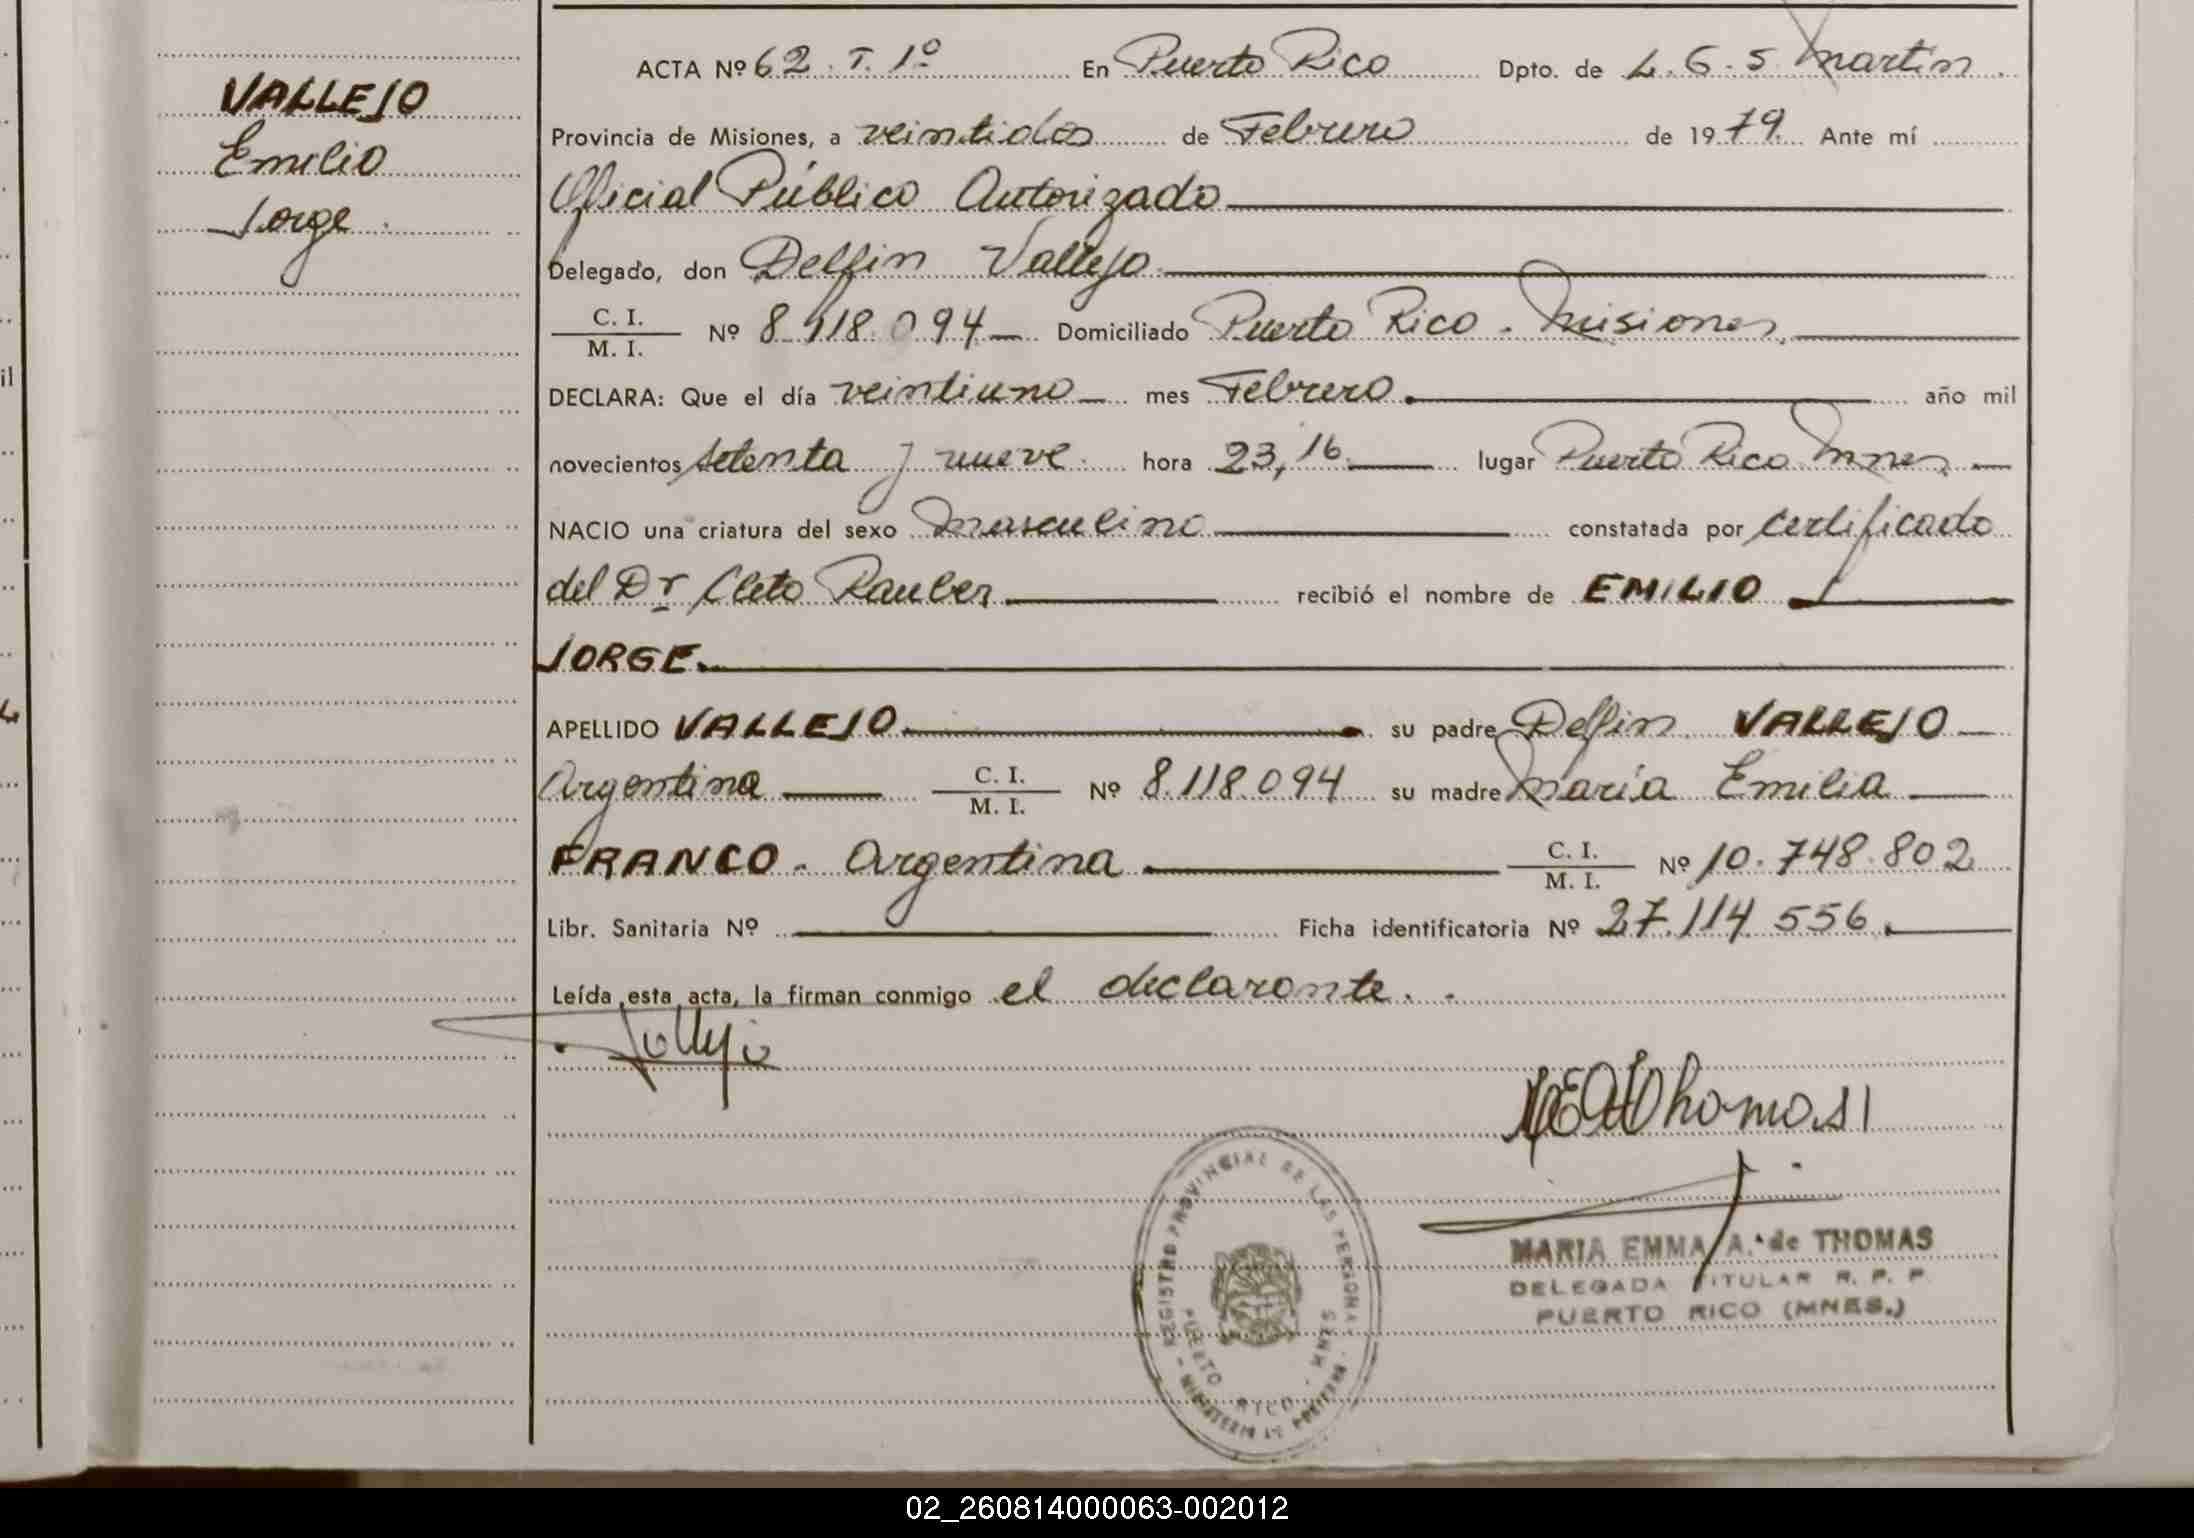 VALLEJO
Emilio
Jorge.
ACTA Nº 62. T. 1º En Puerto Rico Dpto. de L. G. S. Martin.
Provincia de Misiones, a veintidos de Febrero de 1979. Ante mí
Oficial Público Autorizado
Delegado, don Delfin Vallejo.
C. I.
M. I. Nº 8.118.094 Domiciliado Puerto Rico - Misiones,
DECLARA: Que el día veintiuno mes Febrero. año mil
novecientos setenta y nueve. hora 23,16 lugar Puerto Rico Mnes.
NACIO una criatura del sexo Masculino constatada por certificado
del Dr Cleto Rauber recibió el nombre de EMILIO
JORGE.
APELLIDO VALLEJO su padre Delfin VALLEJO
Argentina C. I.
M. I. Nº 8.118.094 su madre María Emilia
FRANCO - Argentina C. I.
M. I. Nº 10.748.802
Libr. Sanitaria Nº Ficha identificatoria Nº 27.114.556.
Leída esta acta, la firman conmigo el declarante.
Vallejo
MARIA EMMA A. de THOMAS
DELEGADA TITULAR R. P. P.
PUERTO RICO (MNES.)
REGISTRO PROVINCIAL DE LAS PERSONAS
PUERTO RICO - MNES
il
02_260814000063-002012